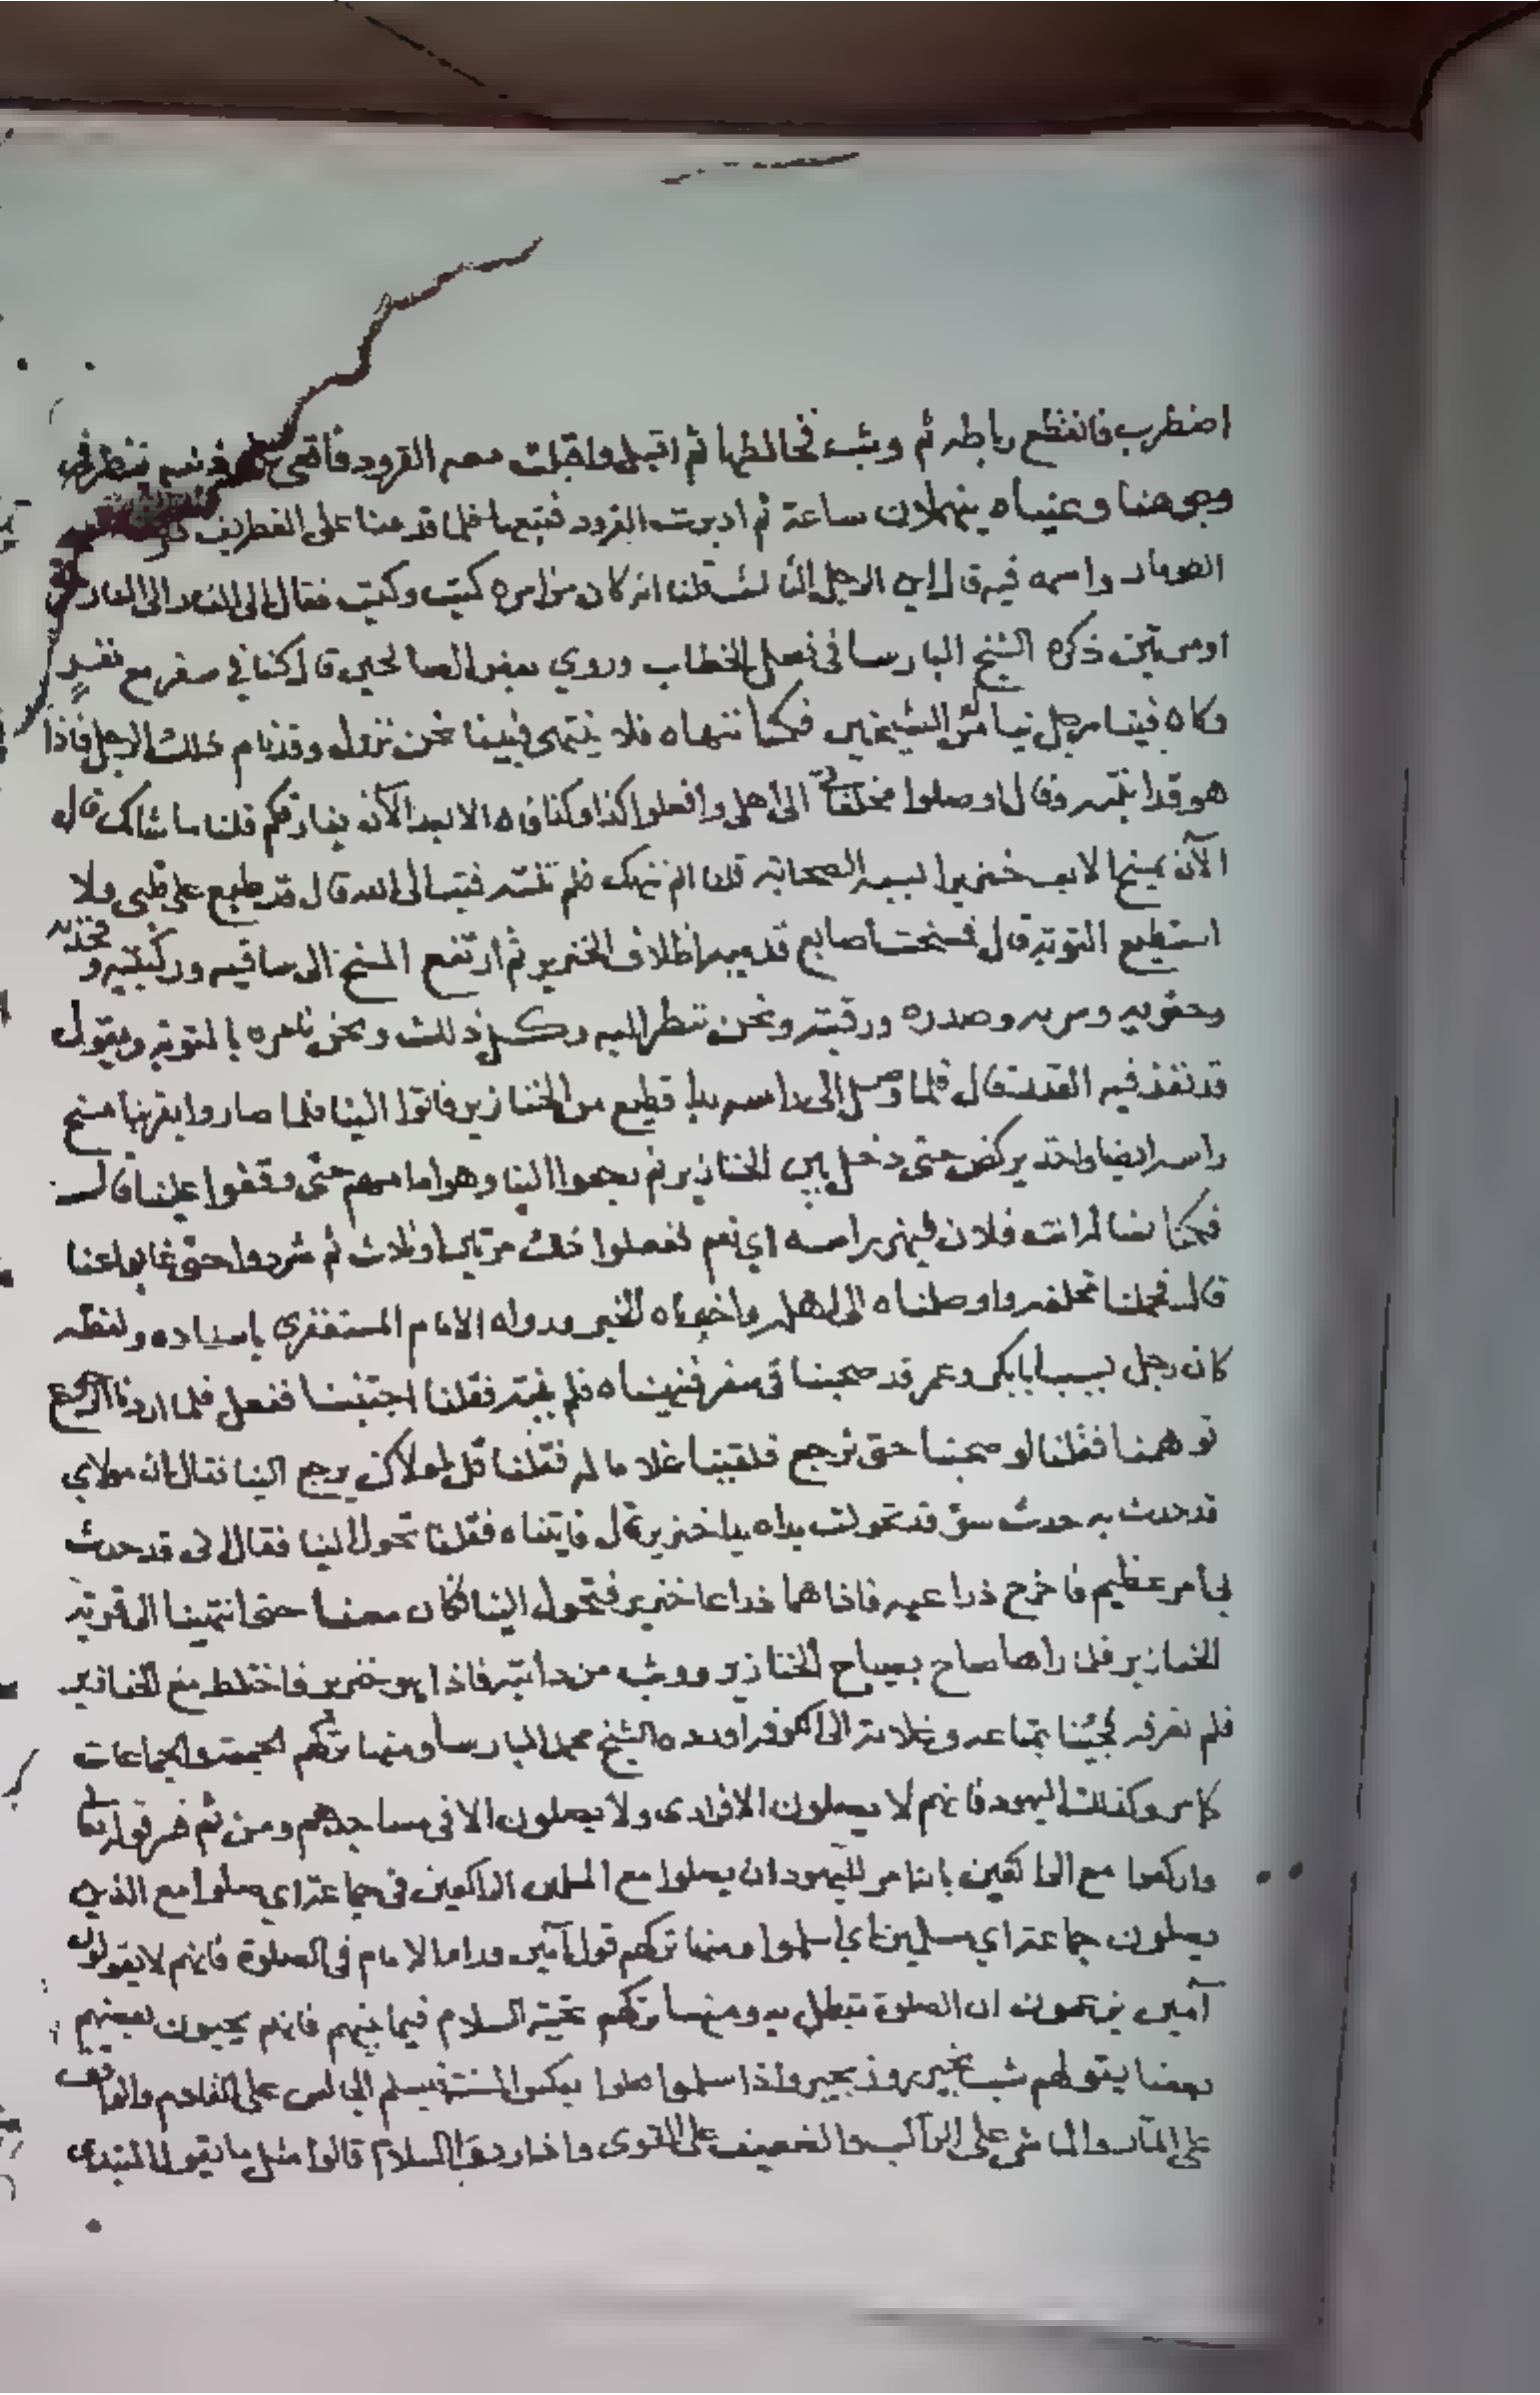 اضطرب فانقطع رباطه ثم وثب فخالطها ثم اقبل واقبلت معه القرود فاقعى ينظر في
وجوهنا وعيناه ينهملان ساعة ثم ادبرت القرود فتبعها فلما قدمنا على الغطريف
الطومار واسمه فيه قال اين الرجل الثالث قلنا انه كان من امره كيت وكيت فقال الى النار الى النار
اومرتين ذكره الشيخ البارسا في فصل الخطاب وروي بعض الصالحين قال كنا في سفر مع نفير
وكان فينا رجل ينال من الشيخين فكنا ننهاه فلا ينتهى فبينا نحن نزول وقد نام ذلك الرجل فاذا
هو قد انتبه وقال اوصلوا مخلفاتي الى اهلي وافعلوا كذا وكذا فانه الا بعد الآن يفارقكم قلنا ما شانك قال
الآن يمسخ الابعد خنزيرا لسبه الصحابة قلنا الم ننهك فلم تنته فتب الى الله قال قد طبع على قلبي ولا
استطيع التوبة قال فمسخت اصابع قدميه اظلاف الخنزير ثم ارتفع المسخ الى ساقيه وركبتيه وفخذيه
وحقويه وسرته وصدره ورقبته ونحن ننظر اليه وكل ذلك ونحن نامره بالتوبة ويقول
قد نفذ فيه القدر قال فلما وصل الى راسه بدا قطيع من الخنازير فاتوا الينا فلما صاروا بقربنا مسخ
راسه ايضا واخذ يركض حتى دخل بين الخنازير ثم رجعوا الينا وهو امامهم حتى وقفوا علينا قال
فكنا نساله انت فلان فيهز براسه اي نعم ففعلوا ذلك مرتين او ثلاث ثم شردوا حتى غابوا عنا
قال فحملنا مخلفه واوصلناه الى اهله واخبرناه الخبر ورواه الامام المستغفري باسناده ولفظه
كان رجل يسب ابا بكر وعمر قد صحبنا في سفر فنهيناه فلم ينته فقلنا اجتنبنا ففعل فلما اردنا الرجوع
توهمنا فقلنا لو صحبنا حتى نرجع فلقينا غلاما له فقلنا قل لمولاك يرجع الينا فقال ان مولاي
قد حدث به حدث سوء قد تحولت يداه يدا خنزير قال فاتيناه فقلنا تحول الينا فقال لى قد حدث
بي امر عظيم فاخرج ذراعيه فاذا هما ذراعا خنزير فتحول الينا فكان معنا حتى انتهينا الى قرية
الخنازير فلما راها صاح بصياح الخنازير ووثب من دابته فاذا هو خنزير فاختلط مع الخنازير
فلم نعرفه فجئنا بمتاعه وغلامه الى الكوفة اورده الشيخ محمد البارسا ومنها تركهم الجمعة والجماعات
كما مر وكذلك اليهود فانهم لا يصلون الا فرادى ولا يصلون الا في مساجدهم ومن ثم
واركعوا مع الراكعين بانه امر لليهود ان يصلوا مع المسلمين الراكعين في جماعة اي صلوا مع الذين
يصلون جماعة اي مسلمين اي اسلموا ومنها تركهم قول آمين وراء الامام في الصلوة فانهم لا يقولون
آمين يزعمون ان الصلوة تبطل به ومنها تركهم تحية السلام فيما بينهم فانهم يحيون بعضهم
بعضا بقولهم شب بخير وروز بخير واذا سلموا سلموا بعكس السنة فيسلم الجالس على القادم والواقف
على المار والماشي على الراكب والضعيف على القوى واذا ردوا السلام قالوا مثل ما يقول المبتدى